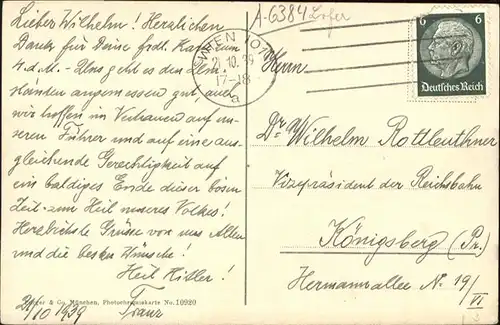 Lieber Wilhelm! Herzlichen
Dank für Deine frdl. Karte zum
4. d.M. – Uns geht es den Um-
ständen angemessen gut, auch
wir hoffen im Vertrauen auf un-
seren Führer und auf eine aus-
gleichende Gerechtigkeit auf
ein baldiges Ende dieser bösen
Zeit zum Heil unseres Volkes!
Herzlichste Grüsse von uns Allen
und die besten Wünsche!
Heil Hitler!
Franz
21/10 1939
& Co. München, Photochromiekarte No. 10920
A-6384 Lofer
WIEN 107
21.10.39
17-18
a
6 6
Deutsches Reich
Herrn
Dr. Wilhelm Rottleuthner
Vizepräsident der Reichsbahn
Königsberg (Pr.)
Hermannallee No. 19/
VI